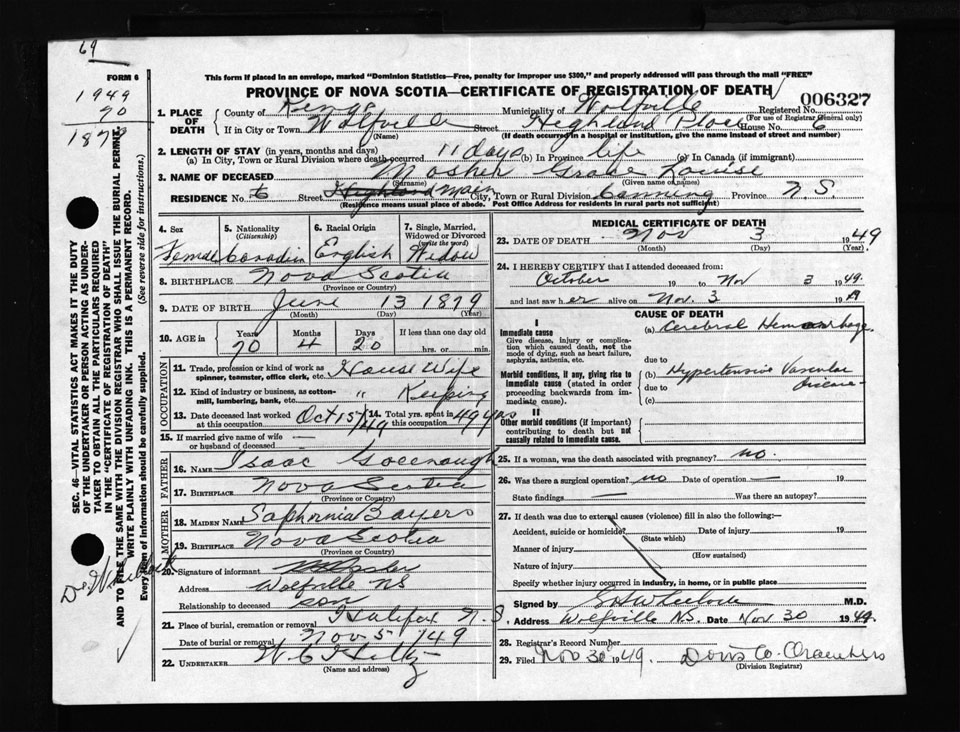 69
FORM 6
This form if placed in an envelope, marked "Dominion Statistics—Free, penalty for improper use $300," and properly addressed will pass through the mail "FREE"
PROVINCE OF NOVA SCOTIA—CERTIFICATE OF REGISTRATION OF DEATH
006327
1949
70
1879
1. PLACE OF DEATH
County of Kings Municipality of Wolfville Registered No.
(For use of Registrar General only)
If in City or Town Wolfville Street Highland House No. 6
(Name) (If death occurred in a hospital or institution, give the name instead of street and number)
2. LENGTH OF STAY (in years, months and days)
(a) In City, Town or Rural Division where death occurred 11 days (b) In Province life (c) In Canada (if immigrant)
3. NAME OF DECEASED Mosher Grace Louise
(Surname) (Given name or names)
RESIDENCE No. 6 Street Highland Main City, Town or Rural Division Canning Province N.S.
(Residence means usual place of abode. Post Office Address for residents in rural parts not sufficient)
4. Sex 5. Nationality (Citizenship) 6. Racial Origin 7. Single, Married, Widowed or Divorced (write the word)
Female Canadian English Widow
8. BIRTHPLACE Nova Scotia
(Province or Country)
9. DATE OF BIRTH June 13 1879
(Month) (Day) (Year)
10. AGE in Years Months Days If less than one day old
70 4 20 hrs. or min.
OCCUPATION
11. Trade, profession or kind of work as spinner, teamster, office clerk, etc. House Wife
12. Kind of industry or business, as cotton-mill, lumbering, bank, etc. " Keeping
13. Date deceased last worked at this occupation Oct 15/49 14. Total yrs. spent in this occupation 49 yrs
15. If married give name of wife or husband of deceased —
FATHER
16. NAME Isaac Greenough
17. BIRTHPLACE Nova Scotia
(Province or Country)
MOTHER
18. MAIDEN NAME Saphornia Bayers
19. BIRTHPLACE Nova Scotia
(Province or Country)
20. Signature of informant
Address Wolfville NS
Relationship to deceased son
21. Place of burial, cremation or removal Halifax N.S.
Date of burial or removal Nov 5/49
22. UNDERTAKER W.C. Hiltz
(Name and address)
MEDICAL CERTIFICATE OF DEATH
23. DATE OF DEATH Nov 3 1949
(Month) (Day) (Year)
24. I HEREBY CERTIFY that I attended deceased from:
October 19 to Nov 3 1949.
and last saw her alive on Nov. 3 19
CAUSE OF DEATH
I
Immediate cause
Give disease, injury or complication which caused death, not the mode of dying, such as heart failure, asphyxia, asthenia, etc.
(a) Cerebral Hemorrhage
due to
Morbid conditions, if any, giving rise to immediate cause (stated in order proceeding backwards from immediate cause).
(b) Hypertensive Vascular
due to disease
(c)
II
Other morbid conditions (if important) contributing to death but not causally related to immediate cause.
25. If a woman, was the death associated with pregnancy? no.
26. Was there a surgical operation? no Date of operation — 19
State findings — Was there an autopsy?
27. If death was due to external causes (violence) fill in also the following:—
Accident, suicide or homicide? Date of injury 19
(State which)
Manner of injury
(How sustained)
Nature of injury
Specify whether injury occurred in industry, in home, or in public place
Signed by M.D.
Address Wolfville NS. Date Nov 30 1949.
28. Registrar's Record Number
29. Filed Nov 30 1949. Doris Chambers
(Division Registrar)
SEC. 46—VITAL STATISTICS ACT MAKES IT THE DUTY
OF THE UNDERTAKER OR PERSON ACTING AS UNDER-
TAKER TO OBTAIN ALL THE PARTICULARS REQUIRED
IN THE "CERTIFICATE OF REGISTRATION OF DEATH"
AND TO FILE THE SAME WITH THE DIVISION REGISTRAR WHO SHALL ISSUE THE BURIAL PERMIT.
WRITE PLAINLY WITH UNFADING INK. THIS IS A PERMANENT RECORD.
Every item of information should be carefully supplied. (See reverse side for instructions.)